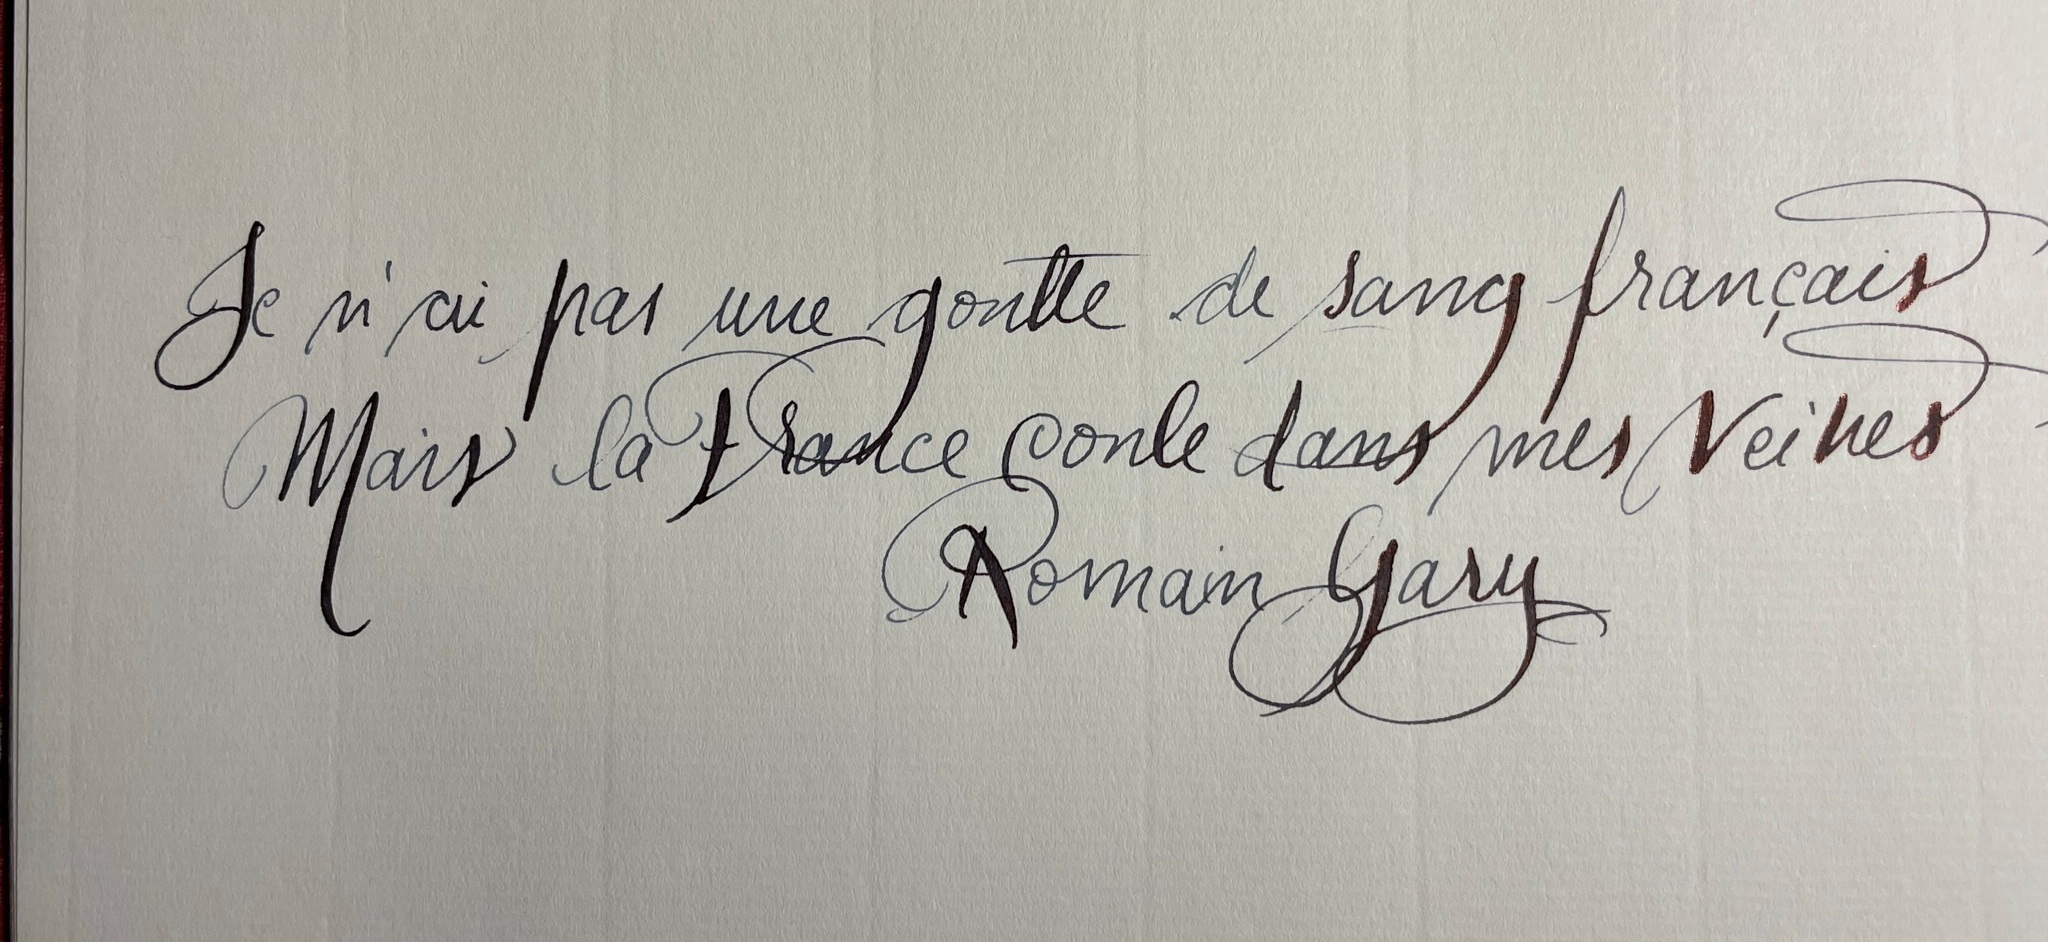 Je n'ai pas une goutte de sang français
Mais la France coule dans mes veines
Romain Gary